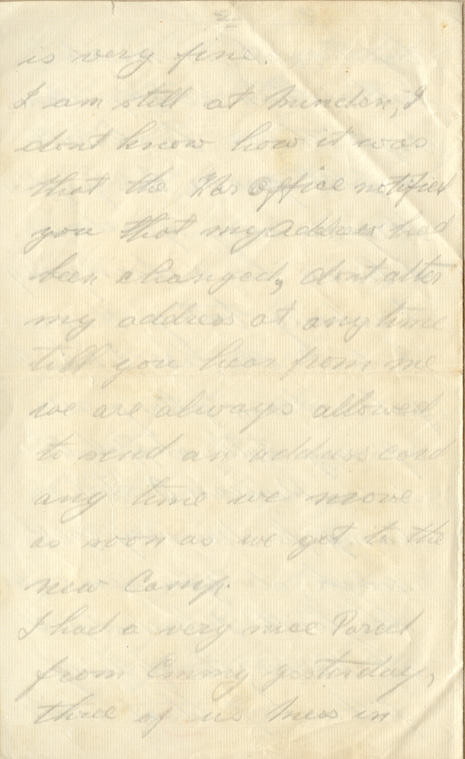 2
is very fine.
I am still at Minden, I
dont know how it was
that the War Office notified
you that my address had
been changed, dont alter
my address at any time
till you hear from me
we are always allowed
to send an address card
any time we move
as soon as we get to the
new Camp.
I had a very nice Parcel
from Emmy yesterday,
three of us mess in